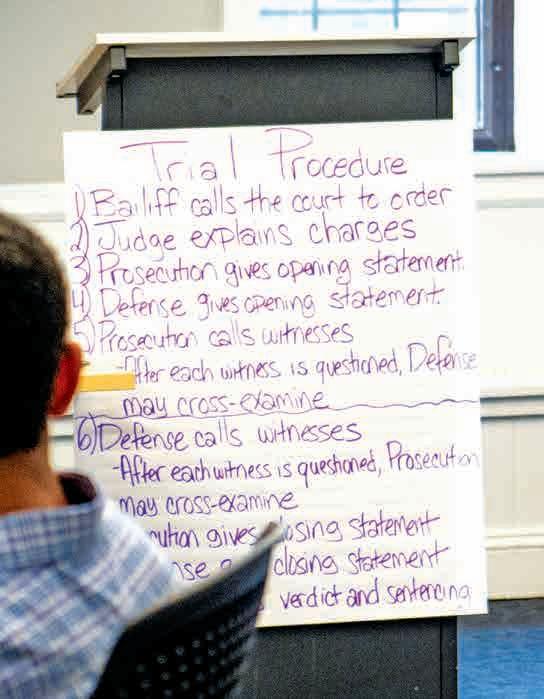 Trial Procedure
1) Bailiff calls the court to order
2) Judge explains charges
3) Prosecution gives opening statement.
4) Defense gives opening statement.
5) Prosecution calls witnesses
-After each witness is questioned, Defense
may cross-examine
6) Defense calls witnesses
-After each witness is questioned, Prosecution
may cross-examine
gives closing statement
closing statement
verdict and sentencing